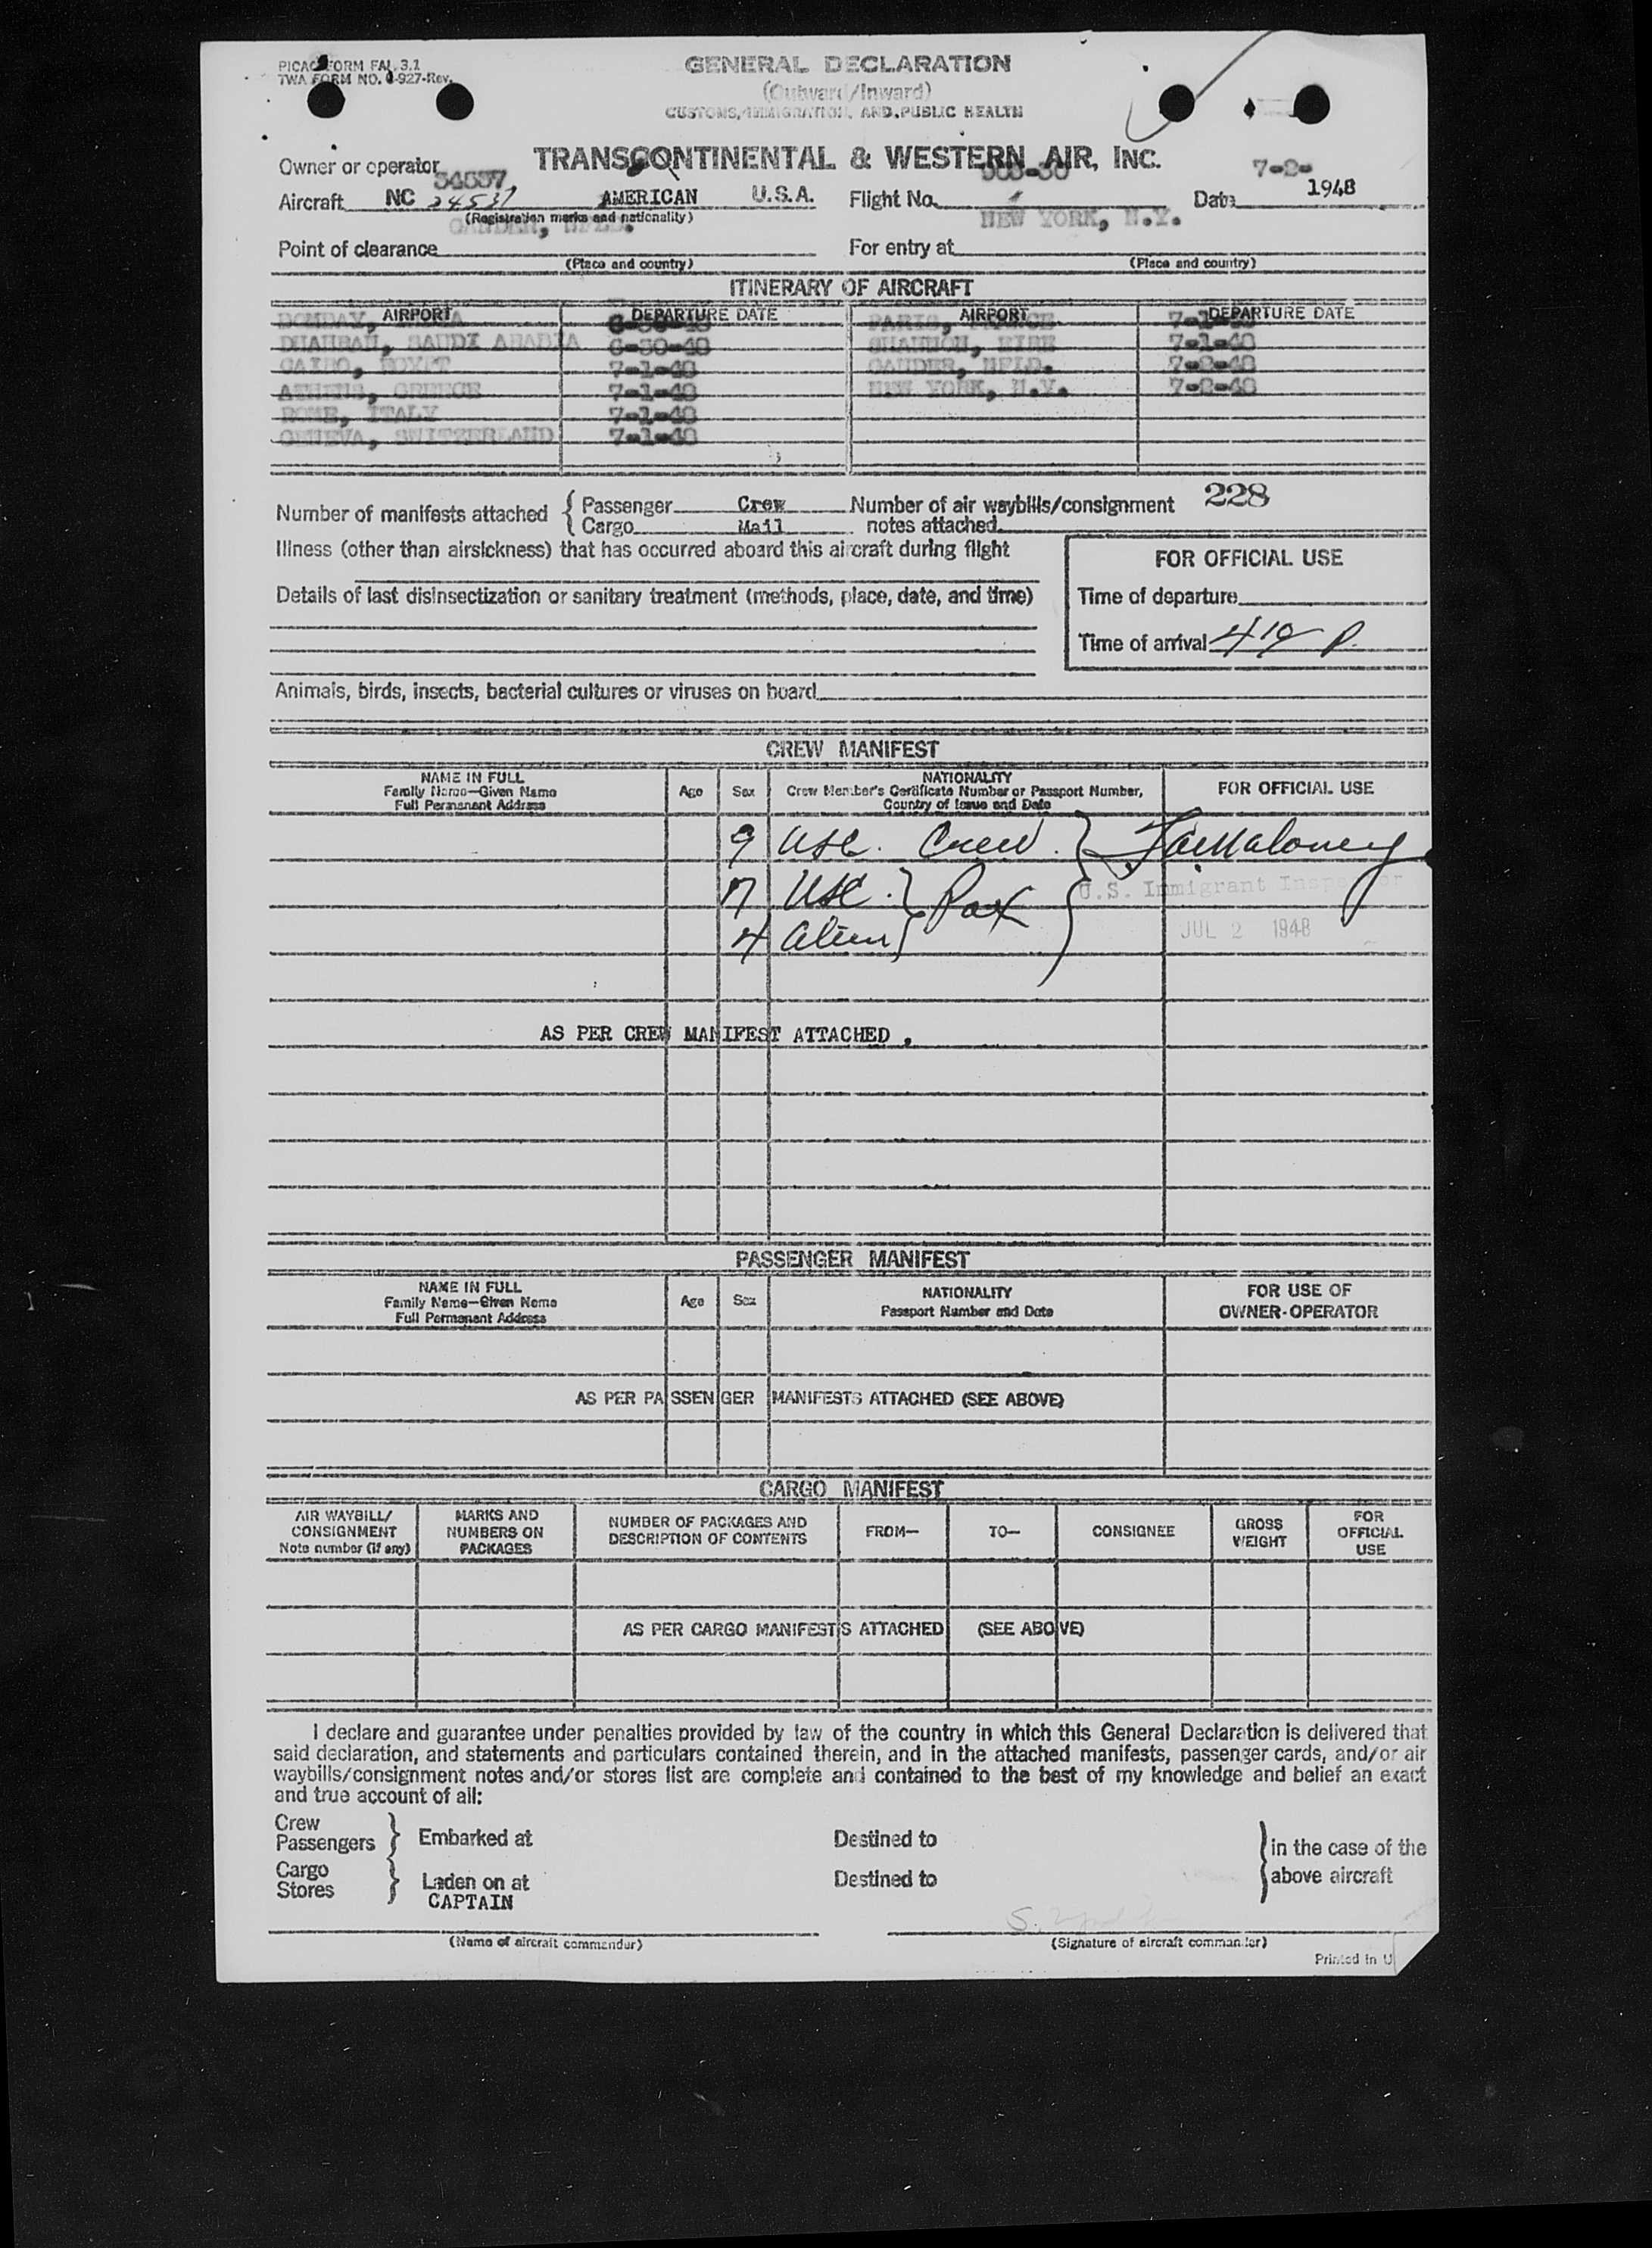 PICAO FORM FAL 3.1
TWA FORM NO. -927-Rev.
GENERAL DECLARATION
(Outward/Inward)
CUSTOMS, IMMIGRATION, AND PUBLIC HEALTH
Owner or operator TRANSCONTINENTAL & WESTERN AIR, INC.
7-2-
Aircraft NC 24537 AMERICAN U.S.A. Flight No. Date 1948
(Registration marks and nationality)
GANDER, NFLD. NEW YORK, N.Y.
Point of clearance For entry at
(Place and country) (Place and country)
ITINERARY OF AIRCRAFT
AIRPORT DEPARTURE DATE AIRPORT DEPARTURE DATE
BOMBAY, INDIA 6-30-48 PARIS, FRANCE 7-1-48
DHAHRAN, SAUDI ARABIA 6-30-48 SHANNON, EIRE 7-1-48
CAIRO, EGYPT 7-1-48 GANDER, NFLD. 7-2-48
ATHENS, GREECE 7-1-48 NEW YORK, N.Y. 7-2-48
ROME, ITALY 7-1-48
GENEVA, SWITZERLAND 7-1-48
Number of manifests attached { Passenger Crew Number of air waybills/consignment 228
Cargo Mail notes attached
Illness (other than airsickness) that has occurred aboard this aircraft during flight
FOR OFFICIAL USE
Details of last disinsectization or sanitary treatment (methods, place, date, and time)
Time of departure
Time of arrival 4 19 P.
Animals, birds, insects, bacterial cultures or viruses on board
CREW MANIFEST
NAME IN FULL
Family Name—Given Name
Full Permanent Address
Age Sex
NATIONALITY
Crew Member's Certificate Number or Passport Number,
Country of Issue and Date
FOR OFFICIAL USE
9 USC. Crew.
7 USC. } Pax
4 alien
U.S. Immigrant Inspector
JUL 2 1948
AS PER CREW MANIFEST ATTACHED .
PASSENGER MANIFEST
NAME IN FULL
Family Name—Given Name
Full Permanent Address
Age Sex
NATIONALITY
Passport Number and Date
FOR USE OF
OWNER-OPERATOR
AS PER PASSENGER MANIFESTS ATTACHED (SEE ABOVE)
CARGO MANIFEST
AIR WAYBILL/
CONSIGNMENT
Note number (if any)
MARKS AND
NUMBERS ON
PACKAGES
NUMBER OF PACKAGES AND
DESCRIPTION OF CONTENTS
FROM— TO— CONSIGNEE
GROSS
WEIGHT
FOR
OFFICIAL
USE
AS PER CARGO MANIFESTS ATTACHED (SEE ABOVE)
I declare and guarantee under penalties provided by law of the country in which this General Declaration is delivered that
said declaration, and statements and particulars contained therein, and in the attached manifests, passenger cards, and/or air
waybills/consignment notes and/or stores list are complete and contained to the best of my knowledge and belief an exact
and true account of all:
Crew
Passengers } Embarked at Destined to } in the case of the
Cargo
Stores } Laden on at Destined to above aircraft
CAPTAIN
(Name of aircraft commander) (Signature of aircraft commander)
Printed in U